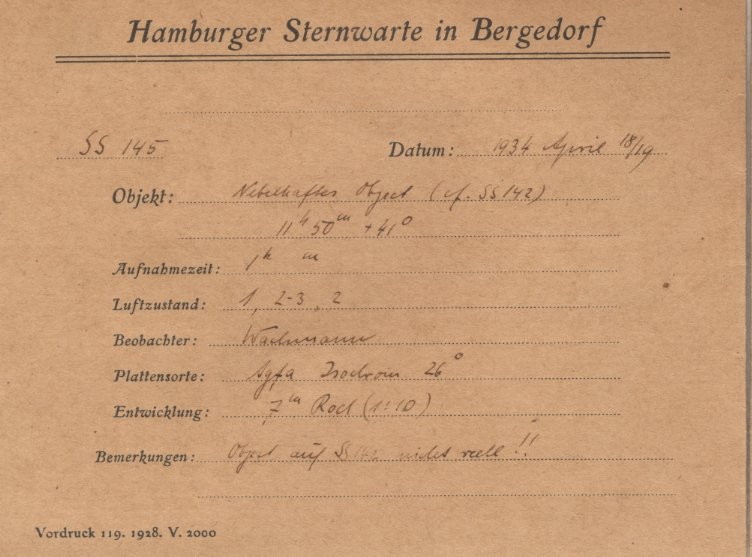 Hamburger Sternwarte in Bergedorf
SS 145 Datum: 1934 April 18/19
Objekt: Nebelhaftes Object (cf. SS 142)
11ʰ 50ᵐ +41°
Aufnahmezeit: 1ʰ ᵐ
Luftzustand: 1, 2-3, 2
Beobachter: Wachmann
Plattensorte: Agfa Isochrom 26°
Entwicklung: 7ᵐ Rod (1:10)
Bemerkungen: Object auf SS 142 nicht reell!!
Vordruck 119. 1928. V. 2000